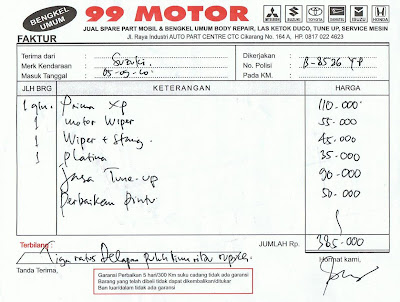 BENGKEL UMUM
99 MOTOR
MITSUBISHI SUZUKI DAIHATSU TOYOTA ISUZU HONDA
JUAL SPARE PART MOBIL & BENGKEL UMUM BODY REPAIR, LAS KETOK DUCO, TUNE UP, SERVICE MESIN
Jl. Raya Industri AUTO PART CENTRE CTC Cikarang No. 164 A, HP. 0817 022 4623
FAKTUR
Terima dari : Dikerjakan :
Merk Kendaraan : Suzuki No. Polisi : B-8526 YP
Masuk Tanggal : Pada KM. :
JLH BRG KETERANGAN HARGA
1 Prima XP 110.000
1 motor Wiper 55.000
1 Wiper + Stang 45.000
1 Platina 35.000
Jasa Tune-up 90.000
Perbaikan pintu 50.000
JUMLAH Rp. 385.000
Terbilang : Tiga ratus Delapan puluh lima ribu rupiah
Tanda Terima, Hormat kami,
Garansi Perbaikan 5 hari/300 Km suku cadang tidak ada garansi
Barang yang telah dibeli tidak dapat dikembalikan/ditukar
Ban luar/dalam tidak ada garansi